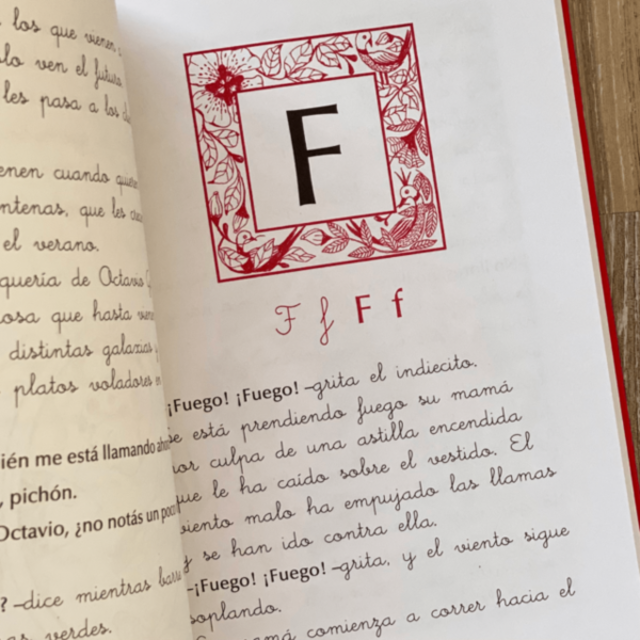 los que vienen
ven el futuro
les pasa a los
cuando
que les
el verano.
de Octavio
que hasta
distintas galaxias
platos voladores en
me está llamando
pichón.
Octavio, ¿no notás un poco
? –dice mientras
verdes.
F
F f F f
¡Fuego! ¡Fuego! –grita el indiecito.
se está prendiendo fuego su mamá
por culpa de una astilla encendida
que le ha caído sobre el vestido. El
viento malo ha empujado las llamas
y se han ido contra ella.
–¡Fuego! ¡Fuego! –grita, y el viento sigue
soplando.
comienza a correr hacia el